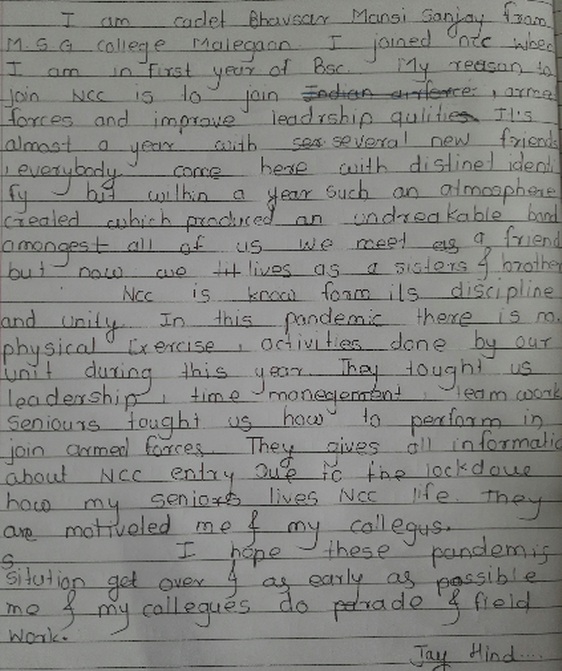 I am cadet Bhavsar Mansi Sanjay from
M.S.G college Malegaon. I joined ncc when
I am in first year of Bsc. My reason to
join NCC is to join Indian airforce, arme
forces and improve leadrship qulities It's
almost a year with ses several new friends
, everybody come here with distinct identi
fy but within a year such an atmosphere
created which produced an undreakable band
amongest all of us we meet as a friend
but now we lives as a sisters & brother
Ncc is know form its discipline
and unity. In this pandemic there is no.
physical Exercise, activities done by our
unit during this year. They tought us
leadership, time manegement, team work
seniours tought us how to perform in
join armed forces. They gives all informatic
about NCC entry Due to the lockdowe
how my seniors lives NCC life. they
are motiveled me & my collegus.
I hope these pandemis
S
sitution get over & as early as possible
me & my collegues do parade & field
work.
Jay Hind....